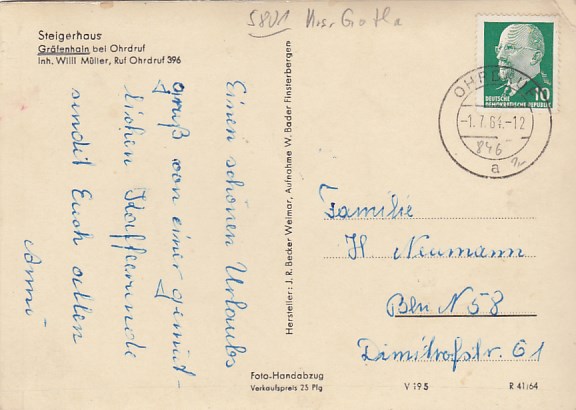 5801 Krs. Gotha
Steigerhaus
Gräfenhain bei Ohrdruf
Inh. Willi Müller, Ruf Ohrdruf 396
10
DEUTSCHE
DEMOKRATISCHE REPUBLIK
OHRDRUF
-1.7.64.-12
846
a
Einen schönen Urlaubs
gruß von einer gemüt-
lichen Kafferunde
sendet Euch allen
Anni
Hersteller: J. R. Becker Weimar, Aufnahme W. Bader Finsterbergen
Familie
H Neumann
Bln N 58
Dimitrofstr. 61
Foto-Handabzug
Verkaufspreis 25 Pfg
V 195
R 41/64